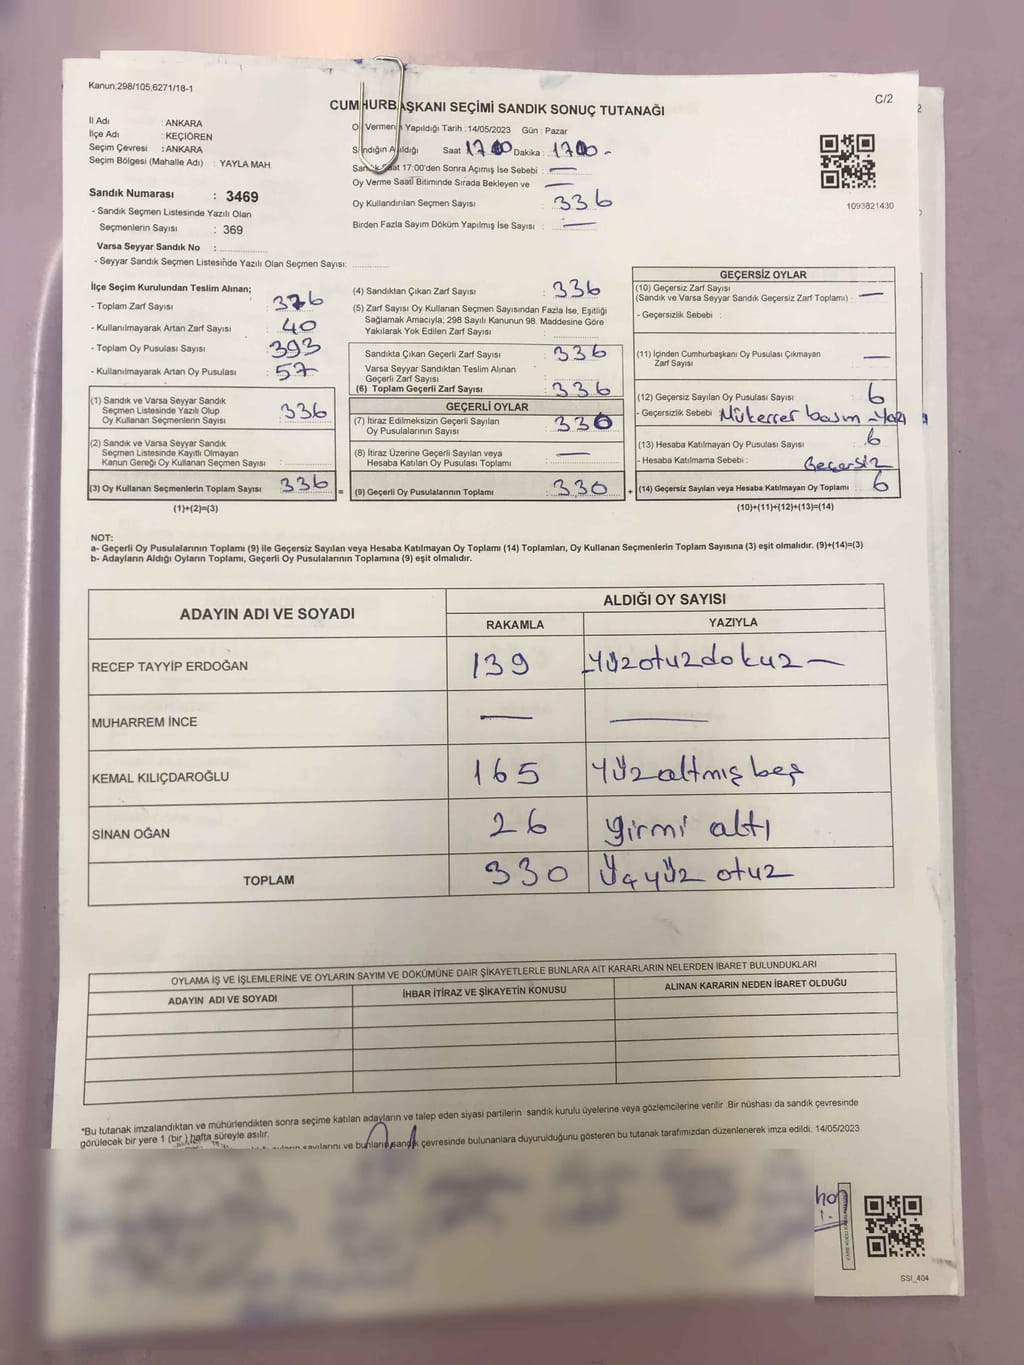 Kanun;298/105;6271/18-1
C/2
CUMHURBAŞKANI SEÇİMİ SANDIK SONUÇ TUTANAĞI
İl Adı : ANKARA
İlçe Adı : KEÇİÖREN
Seçim Çevresi : ANKARA
Seçim Bölgesi (Mahalle Adı) : YAYLA MAH.
Sandık Numarası : 3469
- Sandık Seçmen Listesinde Yazılı Olan
Seçmenlerin Sayısı : 369
Varsa Seyyar Sandık No :
- Seyyar Sandık Seçmen Listesinde Yazılı Olan Seçmen Sayısı:
Vermenin Yapıldığı Tarih : 14/05/2023 Gün : Pazar
Sandığın Açıldığı Saat 17.00 Dakika : 17.00 -
Saat 17:00'den Sonra Açımış İse Sebebi : —
Oy Verme Saati Bitiminde Sırada Bekleyen ve —
Oy Kullandırılan Seçmen Sayısı 336
Birden Fazla Sayım Döküm Yapılmış İse Sayısı : —
1093821430
İlçe Seçim Kurulundan Teslim Alınan;
- Toplam Zarf Sayısı : 376
- Kullanılmayarak Artan Zarf Sayısı : 40
- Toplam Oy Pusulası Sayısı : 393
- Kullanılmayarak Artan Oy Pusulası : 57
(1) Sandık ve Varsa Seyyar Sandık
Seçmen Listesinde Yazılı Olup
Oy Kullanan Seçmenlerin Sayısı : 336
(2) Sandık ve Varsa Seyyar Sandık
Seçmen Listesinde Kayıtlı Olmayan
Kanun Gereği Oy Kullanan Seçmen Sayısı :
(3) Oy Kullanan Seçmenlerin Toplam Sayısı : 336
(1)+(2)=(3)
(4) Sandıktan Çıkan Zarf Sayısı : 336
(5) Zarf Sayısı Oy Kullanan Seçmen Sayısından Fazla İse, Eşitliği
Sağlamak Amacıyla, 298 Sayılı Kanunun 98. Maddesine Göre
Yakılarak Yok Edilen Zarf Sayısı :
Sandıkta Çıkan Geçerli Zarf Sayısı : 336
Varsa Seyyar Sandıktan Teslim Alınan
Geçerli Zarf Sayısı :
(6) Toplam Geçerli Zarf Sayısı : 336
GEÇERLİ OYLAR
(7) İtiraz Edilmeksizin Geçerli Sayılan
Oy Pusulalarının Sayısı : 330
(8) İtiraz Üzerine Geçerli Sayılan veya
Hesaba Katılan Oy Pusulası Toplamı : —
= (9) Geçerli Oy Pusulalarının Toplamı : 330
GEÇERSİZ OYLAR
(10) Geçersiz Zarf Sayısı
(Sandık ve Varsa Seyyar Sandık Geçersiz Zarf Toplamı) : —
- Geçersizlik Sebebi :
(11) İçinden Cumhurbaşkanı Oy Pusulası Çıkmayan
Zarf Sayısı : —
(12) Geçersiz Sayılan Oy Pusulası Sayısı : 6
- Geçersizlik Sebebi : Mükerrer basım - Yazı
(13) Hesaba Katılmayan Oy Pusulası Sayısı : 6
- Hesaba Katılmama Sebebi : Geçersiz
+ (14) Geçersiz Sayılan veya Hesaba Katılmayan Oy Toplamı : 6
(10)+(11)+(12)+(13)=(14)
NOT:
a- Geçerli Oy Pusulalarının Toplamı (9) ile Geçersiz Sayılan veya Hesaba Katılmayan Oy Toplamı (14) Toplamları, Oy Kullanan Seçmenlerin Toplam Sayısına (3) eşit olmalıdır. (9)+(14)=(3)
b- Adayların Aldığı Oyların Toplamı, Geçerli Oy Pusulalarının Toplamına (9) eşit olmalıdır.
ADAYIN ADI VE SOYADI
ALDIĞI OY SAYISI
RAKAMLA YAZIYLA
RECEP TAYYİP ERDOĞAN 139 Yüzotuzdokuz —
MUHARREM İNCE — —
KEMAL KILIÇDAROĞLU 165 Yüzaltmışbeş
SİNAN OĞAN 26 Yirmi altı
TOPLAM 330 Üçyüz otuz
OYLAMA İŞ VE İŞLEMLERİNE VE OYLARIN SAYIM VE DÖKÜMÜNE DAİR ŞİKAYETLERLE BUNLARA AİT KARARLARIN NELERDEN İBARET BULUNDUKLARI
ADAYIN ADI VE SOYADI İHBAR İTİRAZ VE ŞİKAYETİN KONUSU ALINAN KARARIN NEDEN İBARET OLDUĞU
*Bu tutanak imzalandıktan ve mühürlendikten sonra seçime katılan adayların ve talep eden siyasi partilerin sandık kurulu üyelerine veya gözlemcilerine verilir. Bir nüshası da sandık çevresinde
görülecek bir yere 1 (bir) hafta süreyle asılır.
sayılarını ve bunların sandık çevresinde bulunanlara duyurulduğunu gösteren bu tutanak tarafımızdan düzenlenerek imza edildi. 14/05/2023
SSI_404